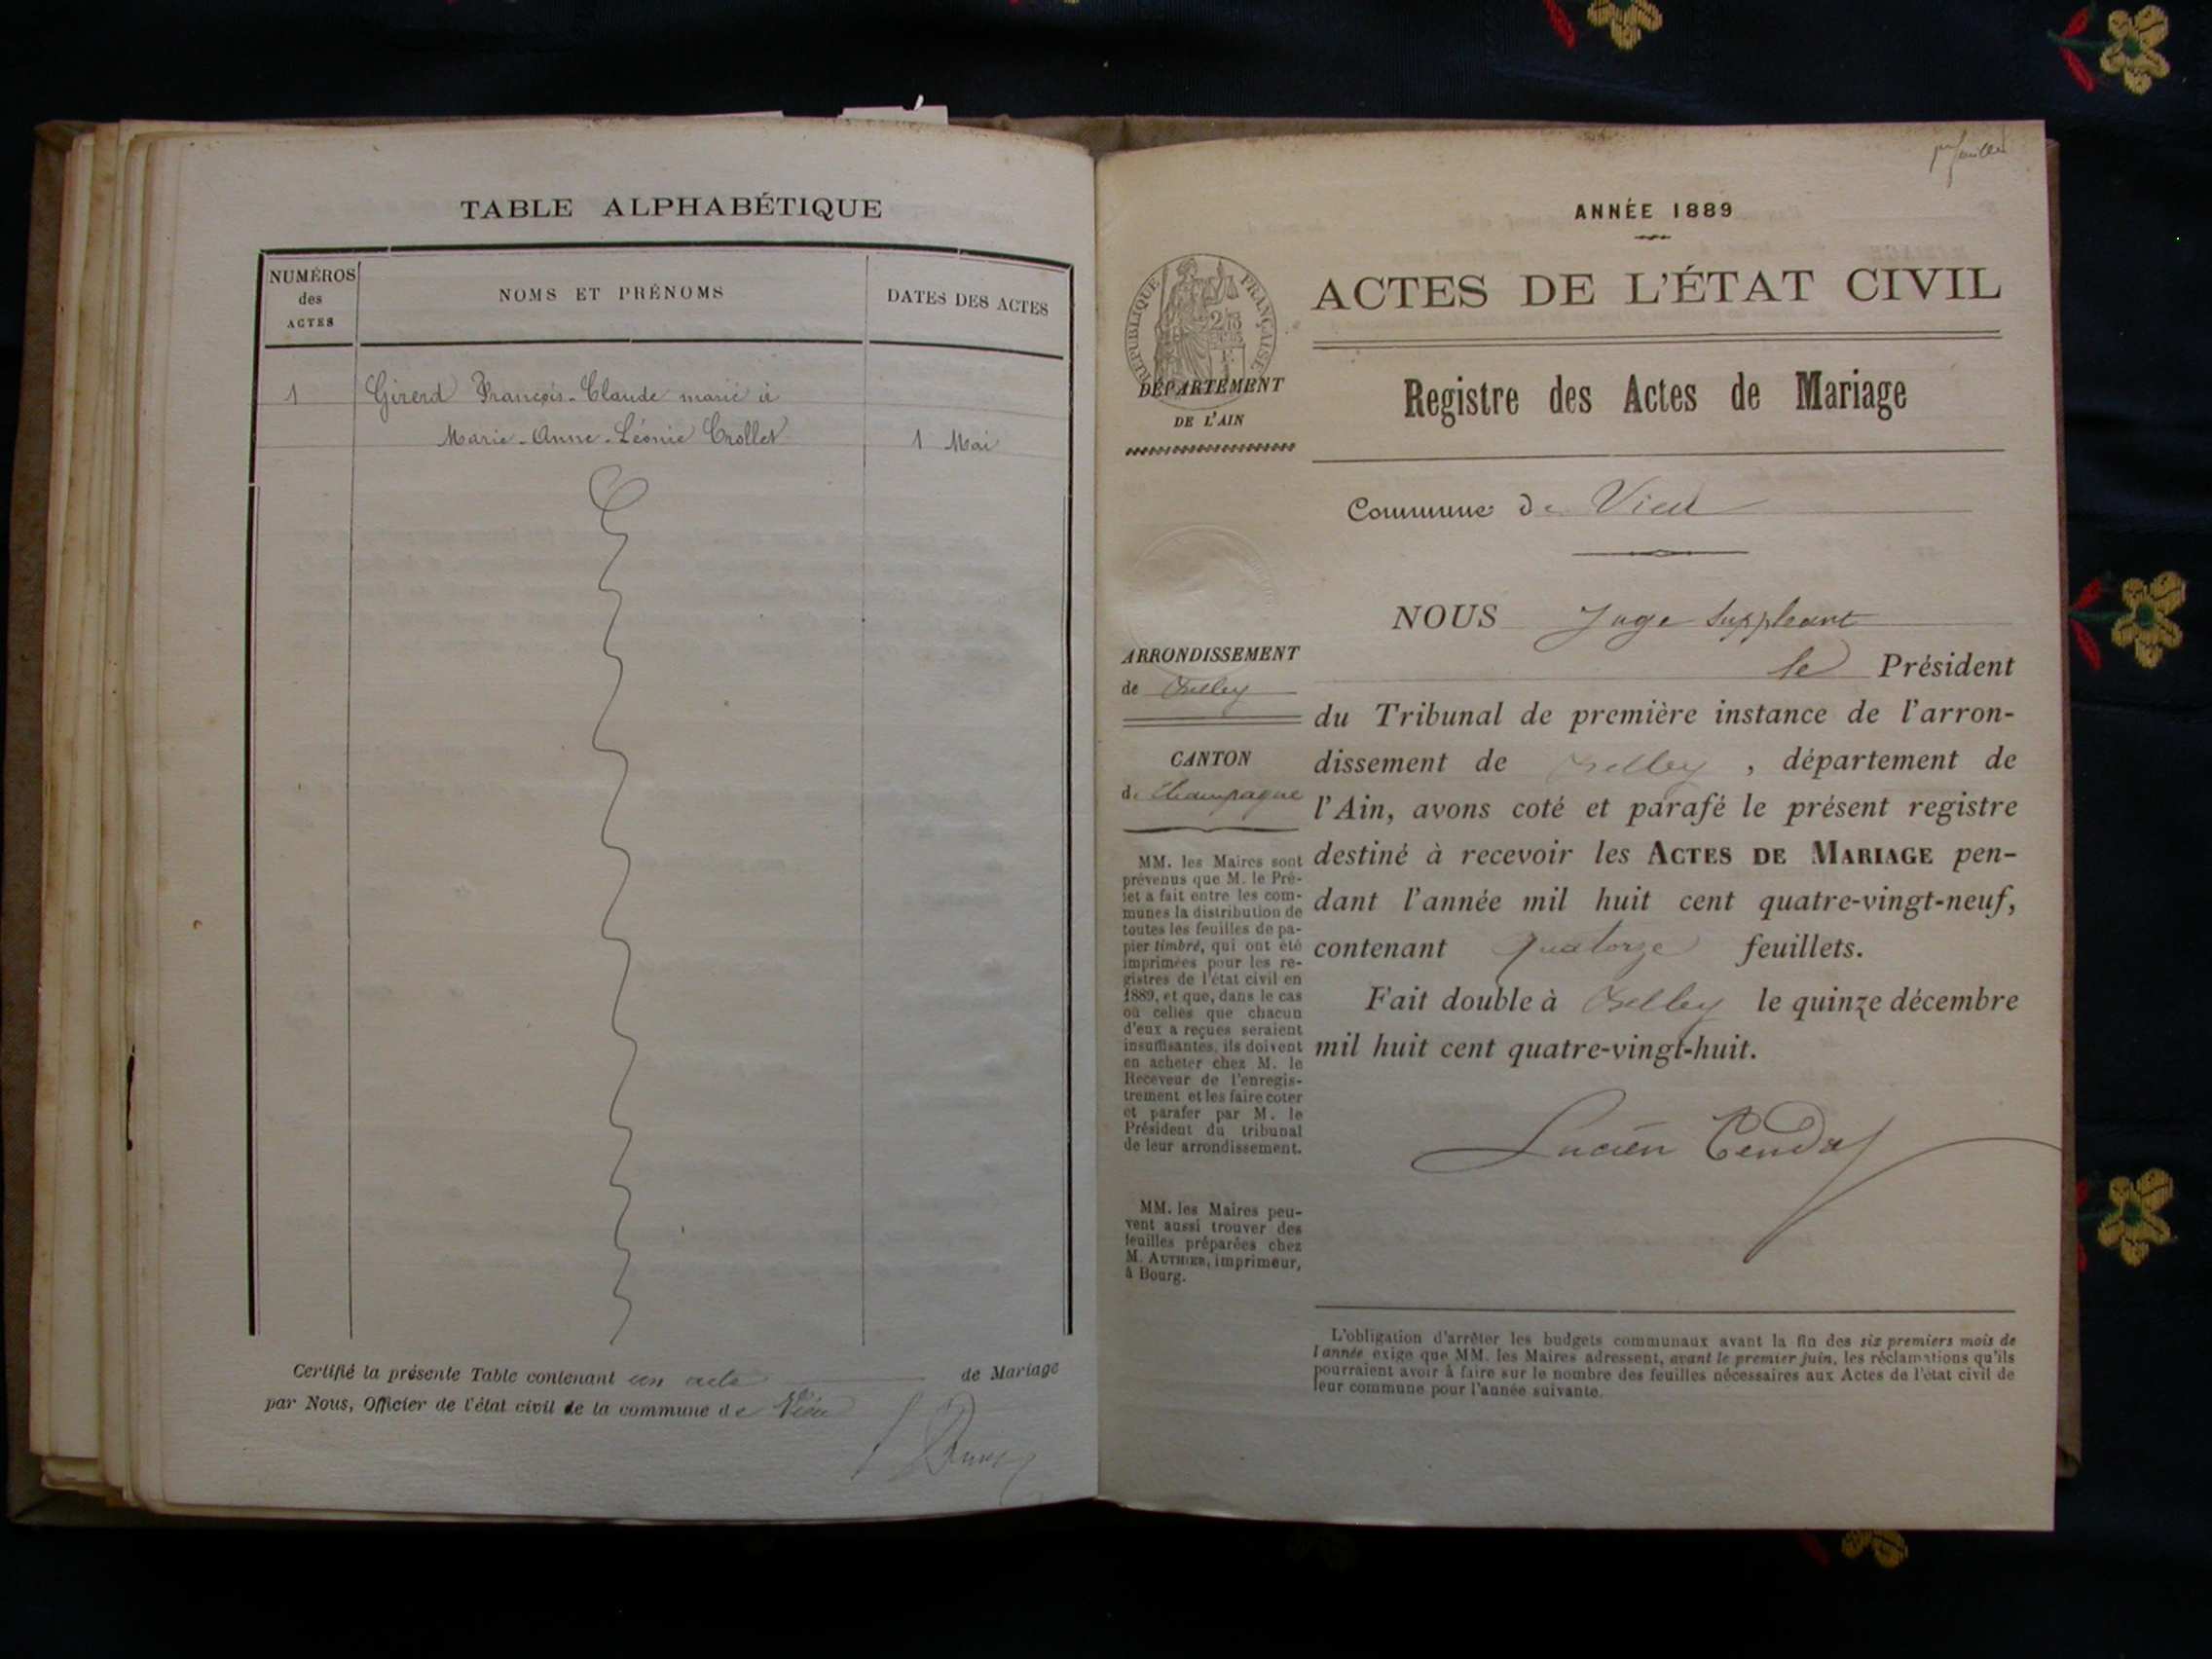 TABLE ALPHABÉTIQUE
NUMÉROS
des
ACTES
NOMS ET PRÉNOMS
DATES DES ACTES
1 Girerd François-Claude marié à
Marie-Anne-Léonie Crollet 1 Mai
Certifié la présente Table contenant un acte de Mariage
par Nous, Officier de l'état civil de la commune de Vieu
ANNÉE 1889
ACTES DE L'ÉTAT CIVIL
RÉPUBLIQUE FRANÇAISE
DÉPARTEMENT
DE L'AIN
Registre des Actes de Mariage
Commune de Vieu
NOUS Juge Suppléant
le Président
du Tribunal de première instance de l'arron-
dissement de Belley, département de
l'Ain, avons coté et parafé le présent registre
destiné à recevoir les ACTES DE MARIAGE pen-
dant l'année mil huit cent quatre-vingt-neuf,
contenant quatorze feuillets.
Fait double à Belley le quinze décembre
mil huit cent quatre-vingt-huit.
Lucien
ARRONDISSEMENT
de Belley
CANTON
de Champagne
MM. les Maires sont
prévenus que M. le Pré-
fet a fait entre les com-
munes la distribution de
toutes les feuilles de pa-
pier timbré, qui ont été
imprimées pour les re-
gistres de l'état civil en
1889, et que, dans le cas
où celles que chacun
d'eux a reçues seraient
insuffisantes, ils doivent
en acheter chez M. le
Receveur de l'enregis-
trement et les faire coter
et parafer par M. le
Président du tribunal
de leur arrondissement.
MM. les Maires peu-
vent aussi trouver des
feuilles préparées chez
M. AUTHIER, imprimeur,
à Bourg.
L'obligation d'arrêter les budgets communaux avant la fin des six premiers mois de
l'année exige que MM. les Maires adressent, avant le premier juin, les réclamations qu'ils
pourraient avoir à faire sur le nombre des feuilles nécessaires aux Actes de l'état civil de
leur commune pour l'année suivante.